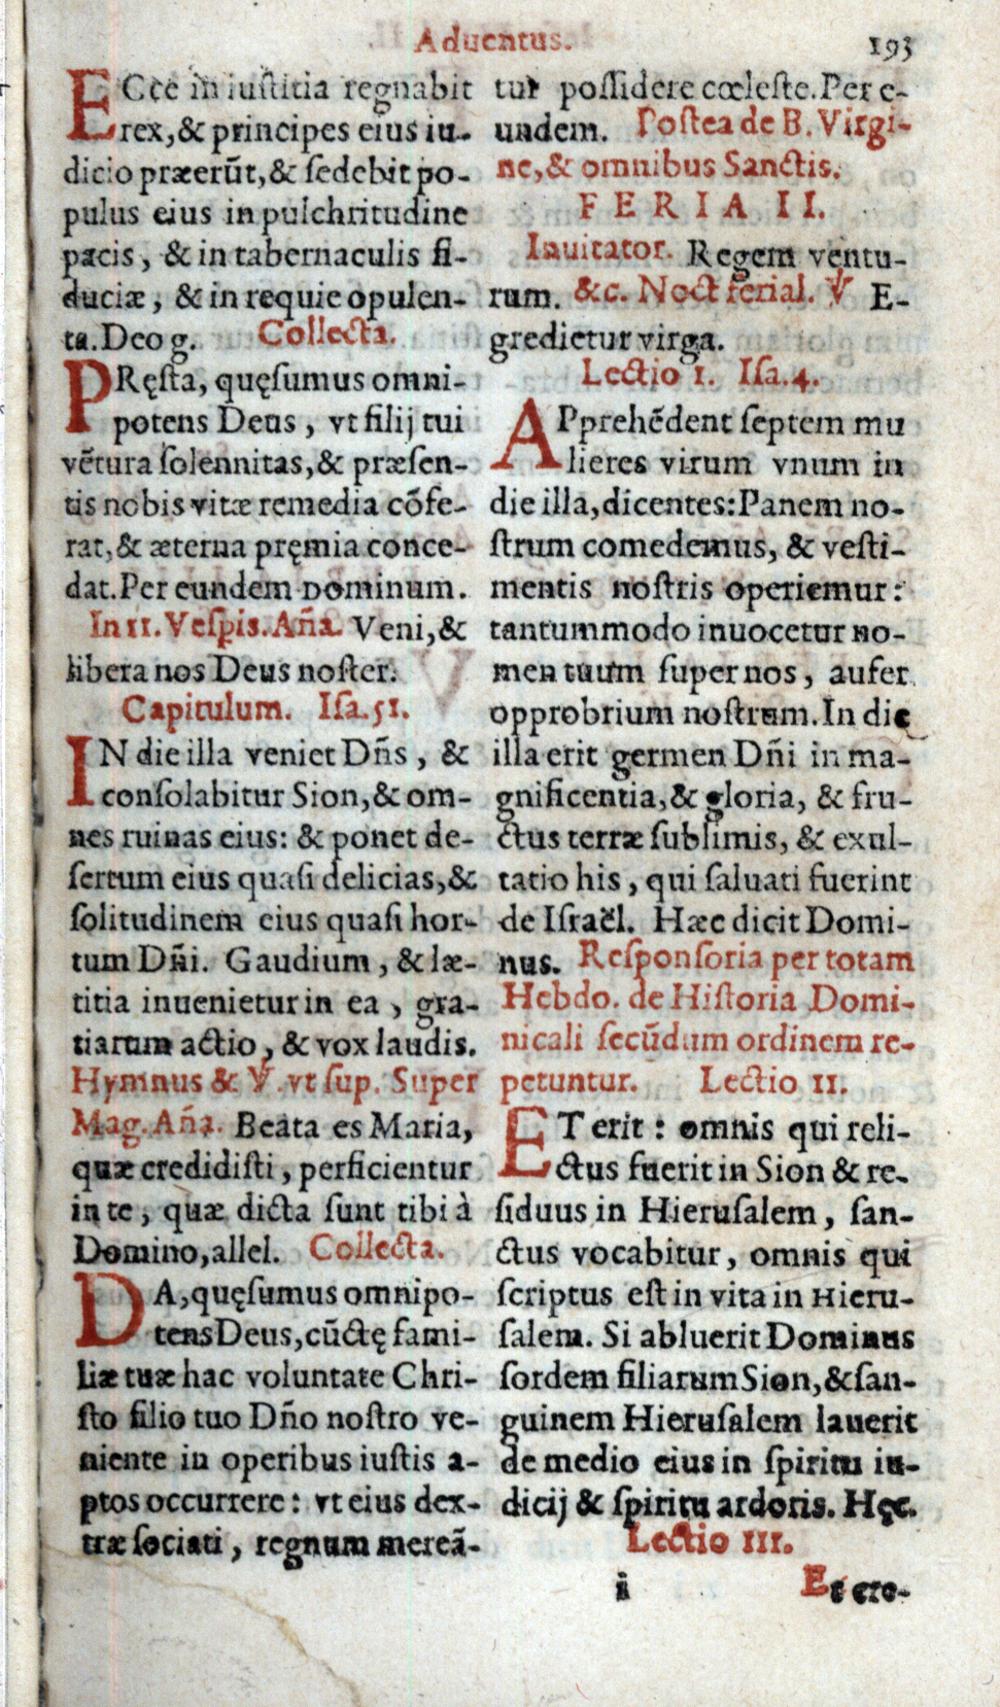 Aduentus. 193
ECce in iustitia regnabit
rex, & principes eius iu-
dicio præerũt, & sedebit po-
pulus eius in pulchritudine
pacis, & in tabernaculis fi-
duciæ, & in requie opulen-
ta. Deo g. Collecta.
PRęsta, quęsumus omni-
potens Deus, vt filij tui
vẽtura solennitas, & præsen-
tis nobis vitæ remedia cõfe-
rat, & æterna pręmia conce-
dat. Per eundem Dominum.
In 11. Vespis. Añа. Veni, &
libera nos Deus noster.
Capitulum. Isa. 51.
IN die illa veniet Dñs, &
consolabitur Sion, & om-
nes ruinas eius: & ponet de-
sertum eius quasi delicias, &
solitudinem eius quasi hor-
tum Dñi. Gaudium, & læ-
titia inuenietur in ea, gra-
tiarum actio, & vox laudis.
Hymnus & ℣. vt sup. Super
Mag. Aña. Beata es Maria,
quæ credidisti, perficientur
in te, quæ dicta sunt tibi à
Domino, allel. Collecta.
DA, quęsumus omnipo-
tens Deus, cũctę fami-
liæ tuæ hac voluntate Chri-
sto filio tuo Dño nostro ve-
niente in operibus iustis a-
ptos occurrere: vt eius dex-
træ sociati, regnum mereã-
tur possidere cœleste. Per e-
undem. Postea de B. Virgi-
ne, & omnibus Sanctis.
FERIA II.
Inuitator. Regem ventu-
rum. &c. Noct ferial. ℣ E-
gredietur virga.
Lectio 1. Isa. 4.
APprehẽdent septem mu
lieres virum vnum in
die illa, dicentes: Panem no-
strum comedemus, & vesti-
mentis nostris operiemur:
tantummodo inuocetur no-
men tuum super nos, aufer
opprobrium nostrum. In die
illa erit germen Dñi in ma-
gnificentia, & gloria, & fru-
ctus terræ sublimis, & exul-
tatio his, qui saluati fuerint
de Israël. Hæc dicit Domi-
nus. Responsoria per totam
Hebdo. de Historia Domi-
nicali secũdum ordinem re-
petuntur. Lectio 11.
ET erit: omnis qui reli-
ctus fuerit in Sion & re-
siduus in Hierusalem, san-
ctus vocabitur, omnis qui
scriptus est in vita in Hieru-
salem. Si abluerit Dominus
sordem filiarum Sion, & san-
guinem Hierusalem lauerit
de medio eius in spiritu iu-
dicij & spiritu ardoris. Hęc.
Lectio 111.
i Et cre-